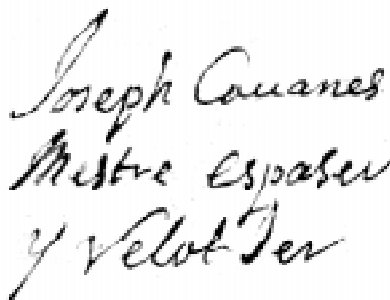 Joseph Couanes
Mestre Espaser
y Velot Ier